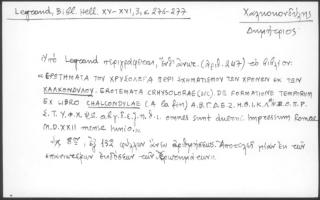 Legrand, Bibl. Hell. XV-XVI, 3, σ. 276-277
Χαλκοκονδύλης
Δημήτριος
Ὑπὸ Legrand περιγράφεται, ὑπ' (ἀριθ. 247) τὸ βιβλίον:
«ΕΡΩΤΗΜΑΤΑ ΤΟΥ ΧΡΥΣΟΛΩΡΑ ΠΕΡΙ ΣΧΗΜΑΤΙΣΜΟΥ ΤΩΝ ΧΡΟΝΩΝ ΕΚ ΤΩΝ
ΧΑΛΚΟΝΔΥΛΟΥ. EROTEMATA CHRYSOLORAE (sic). DE FORMATIONE TEMPORUM
EX LIBRO CHALCONDYLAE (A la fin) Α.Β.Γ.Δ.Ε.Ζ.Η.Θ.Ι.Κ.Λ.Μ. Ο.Π.Ρ.
Σ.Τ.Υ.Φ.Χ.Ψ.Ω. omnes sunt duerni. Impressum Romae
M.D.XXII mense Junio.»
Εἰς 8ον, ἐξ 132 φύλλων ἄνευ ἀριθμήσεως. Ἀποτελεῖ μίαν ἐκ τῶν
ἐκδόσεων τῶν Ἐρωτημάτων.